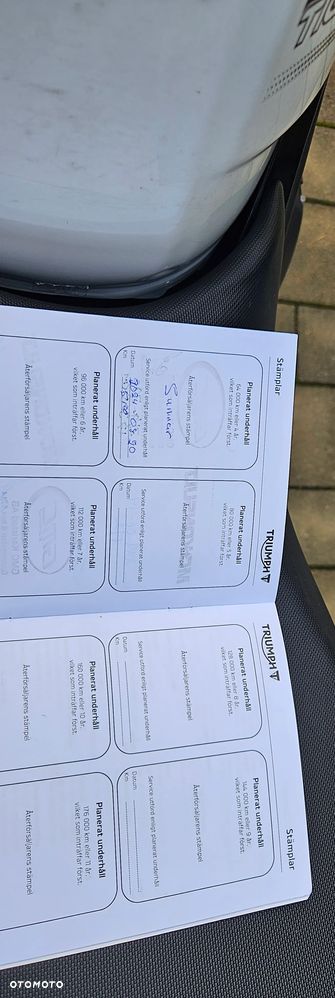 Stämplar
TRIUMPH
Planerat underhåll
64 000 km eller 4 år,
vilket som inträffar först.
Återförsäljarens stämpel
Sumeir
Service utförd enligt planerat underhåll
Datum
Km
Planerat underhåll
80 000 km eller 5 år,
vilket som inträffar först.
Återförsäljarens stämpel
Service utförd enligt planerat underhåll
Datum
Km
Planerat underhåll
96 000 km eller 6 år,
vilket som inträffar först.
Återförsäljarens stämpel
Planerat underhåll
112 000 km eller 7 år,
vilket som inträffar först.
Återförsäljarens stämpel
TRIUMPH
Stämplar
Planerat underhåll
128 000 km eller 8 år,
vilket som inträffar först.
Återförsäljarens stämpel
Service utförd enligt planerat underhåll
Datum
Km
Planerat underhåll
144 000 km eller 9 år,
vilket som inträffar först.
Återförsäljarens stämpel
Service utförd enligt planerat underhåll
Datum
Km
Planerat underhåll
160 000 km eller 10 år,
vilket som inträffar först.
Återförsäljarens stämpel
Planerat underhåll
176 000 km eller 11 år,
vilket som inträffar först.
Återförsäljarens stämpel
OTOMOTO